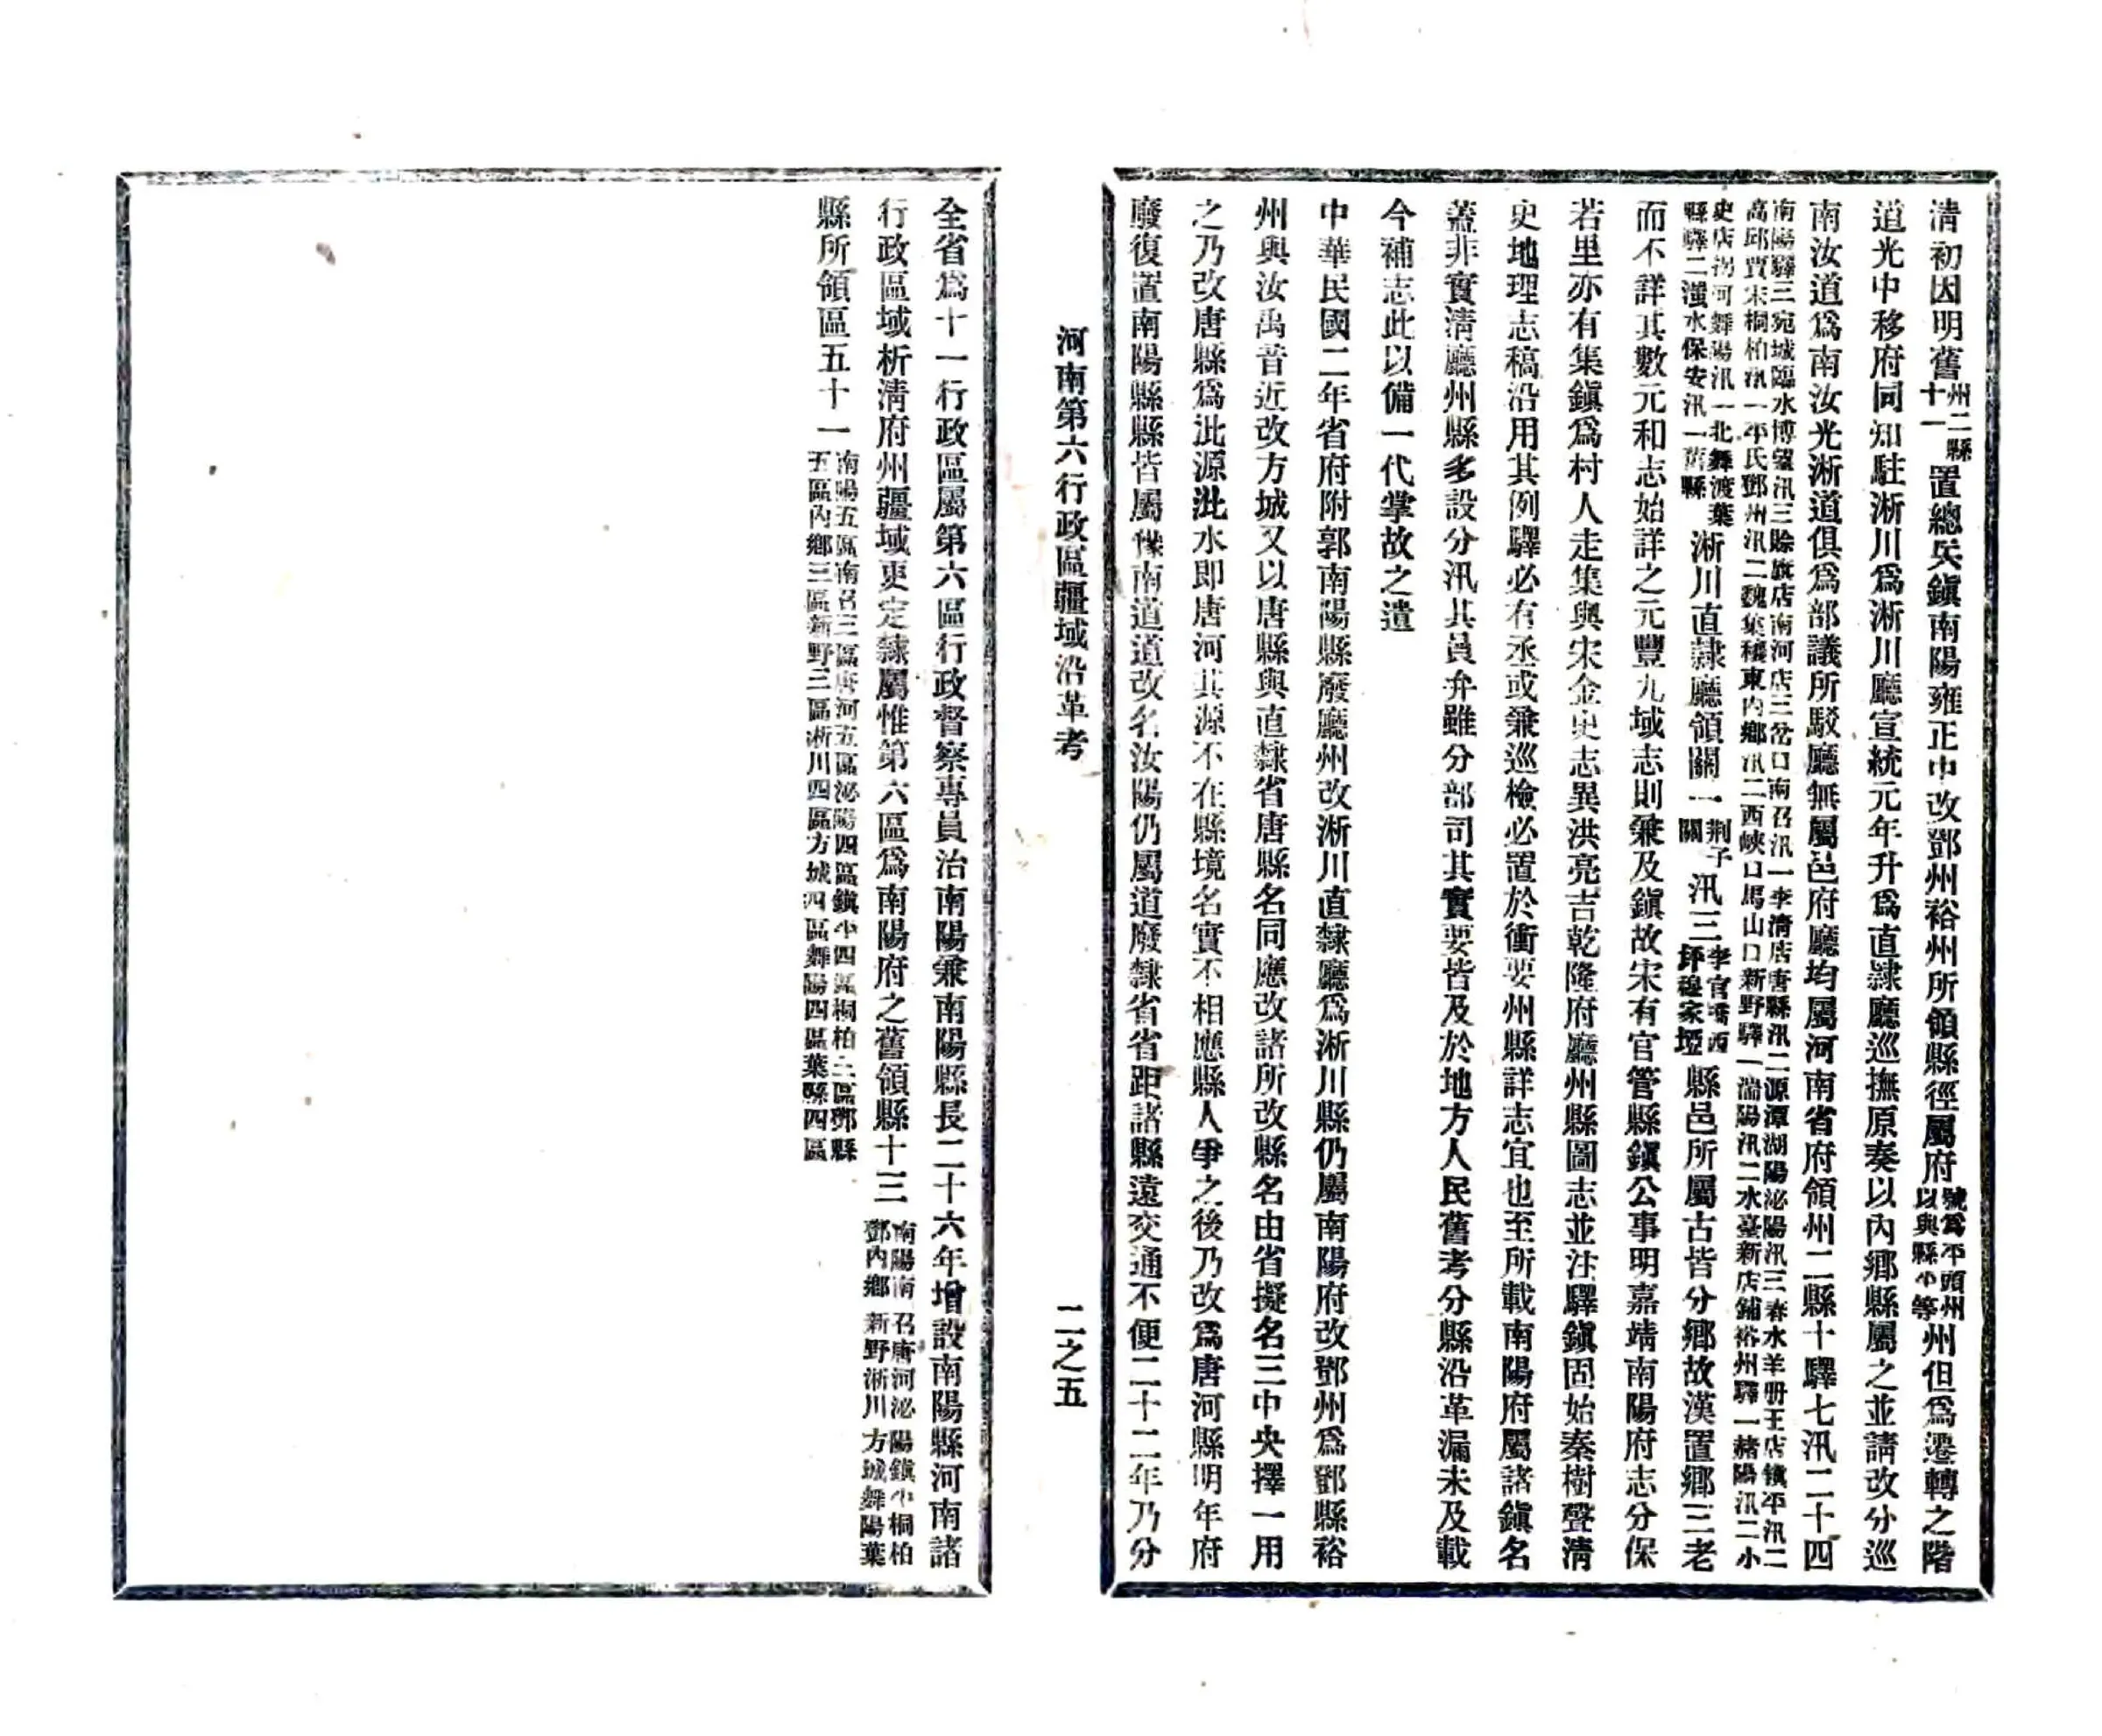 清初因明舊州二縣十一置總兵鎭南陽雍正中改鄧州裕州所領縣徑屬府號爲平頭州以與縣小等州但爲遷轉之階
道光中移府同知駐淅川爲淅川廳宣統元年升爲直隸廳巡撫原奏以內鄉縣屬之並請改分巡
南汝道爲南汝光淅道俱爲部議所駁廳無屬邑府廳均屬河南省府領州二縣十驛七汛二十四
南陽驛三宛城臨水博望汛三賒旗店南河店三岔口南召汛一李淸店唐縣汛二源潭湖陽泌陽汛三春水羊册王店鎭平汛二
高邱賈宋桐柏汛一平氏鄧州汛二魏集穰東內鄉汛二西峽口馬山口新野驛一湍陽汛二水臺新店鋪裕州驛一赭陽汛二小
史店拐河舞陽汛一北舞渡葉
縣驛二滍水保安汛一舊縣
淅川直隸廳領關一荆子關汛三李官橋西坪穆家埡縣邑所屬古皆分鄉故漢置鄉三老
而不詳其數元和志始詳之元豐九域志則兼及鎭故宋有官管縣鎭公事明嘉靖南陽府志分保
若里亦有集鎭爲村人走集與宋金史志異洪亮吉乾隆府廳州縣圖志並注驛鎭固始秦樹聲清
史地理志稿沿用其例驛必有丞或兼巡檢必置於衝要州縣詳志宜也至所載南陽府屬諸鎭名
蓋非實清廳州縣多設分汛其員弁雖分部司其實要皆及於地方人民舊考分縣沿革漏未及載
今補志此以備一代掌故之遺
中華民國二年省府附郭南陽縣廢廳州改淅川直隸廳爲淅川縣仍屬南陽府改鄧州爲鄧縣裕
州與汝禹昔近改方城又以唐縣與直隸省唐縣名同應改諸所改縣名由省擬名三中央擇一用
之乃改唐縣爲沘源沘水即唐河其源不在縣境名實不相應縣人爭之後乃改爲唐河縣明年府
廢復置南陽縣縣皆屬豫南道道改名汝陽仍屬道廢隸省省距諸縣遠交通不便二十二年乃分
河南第六行政區疆域沿革考
二之五
全省爲十一行政區屬第六區行政督察專員治南陽兼南陽縣長二十六年增設南陽縣河南諸
行政區域析清府州疆域更定隸屬惟第六區爲南陽府之舊領縣十三南陽南召唐河泌陽鎭平桐柏鄧內鄉新野淅川方城舞陽葉
縣所領區五十一南陽五區南召三區唐河五區泌陽四區鎭平四區桐柏三區鄧縣五區內鄉三區新野三區淅川四區方城四區舞陽四區葉縣四區